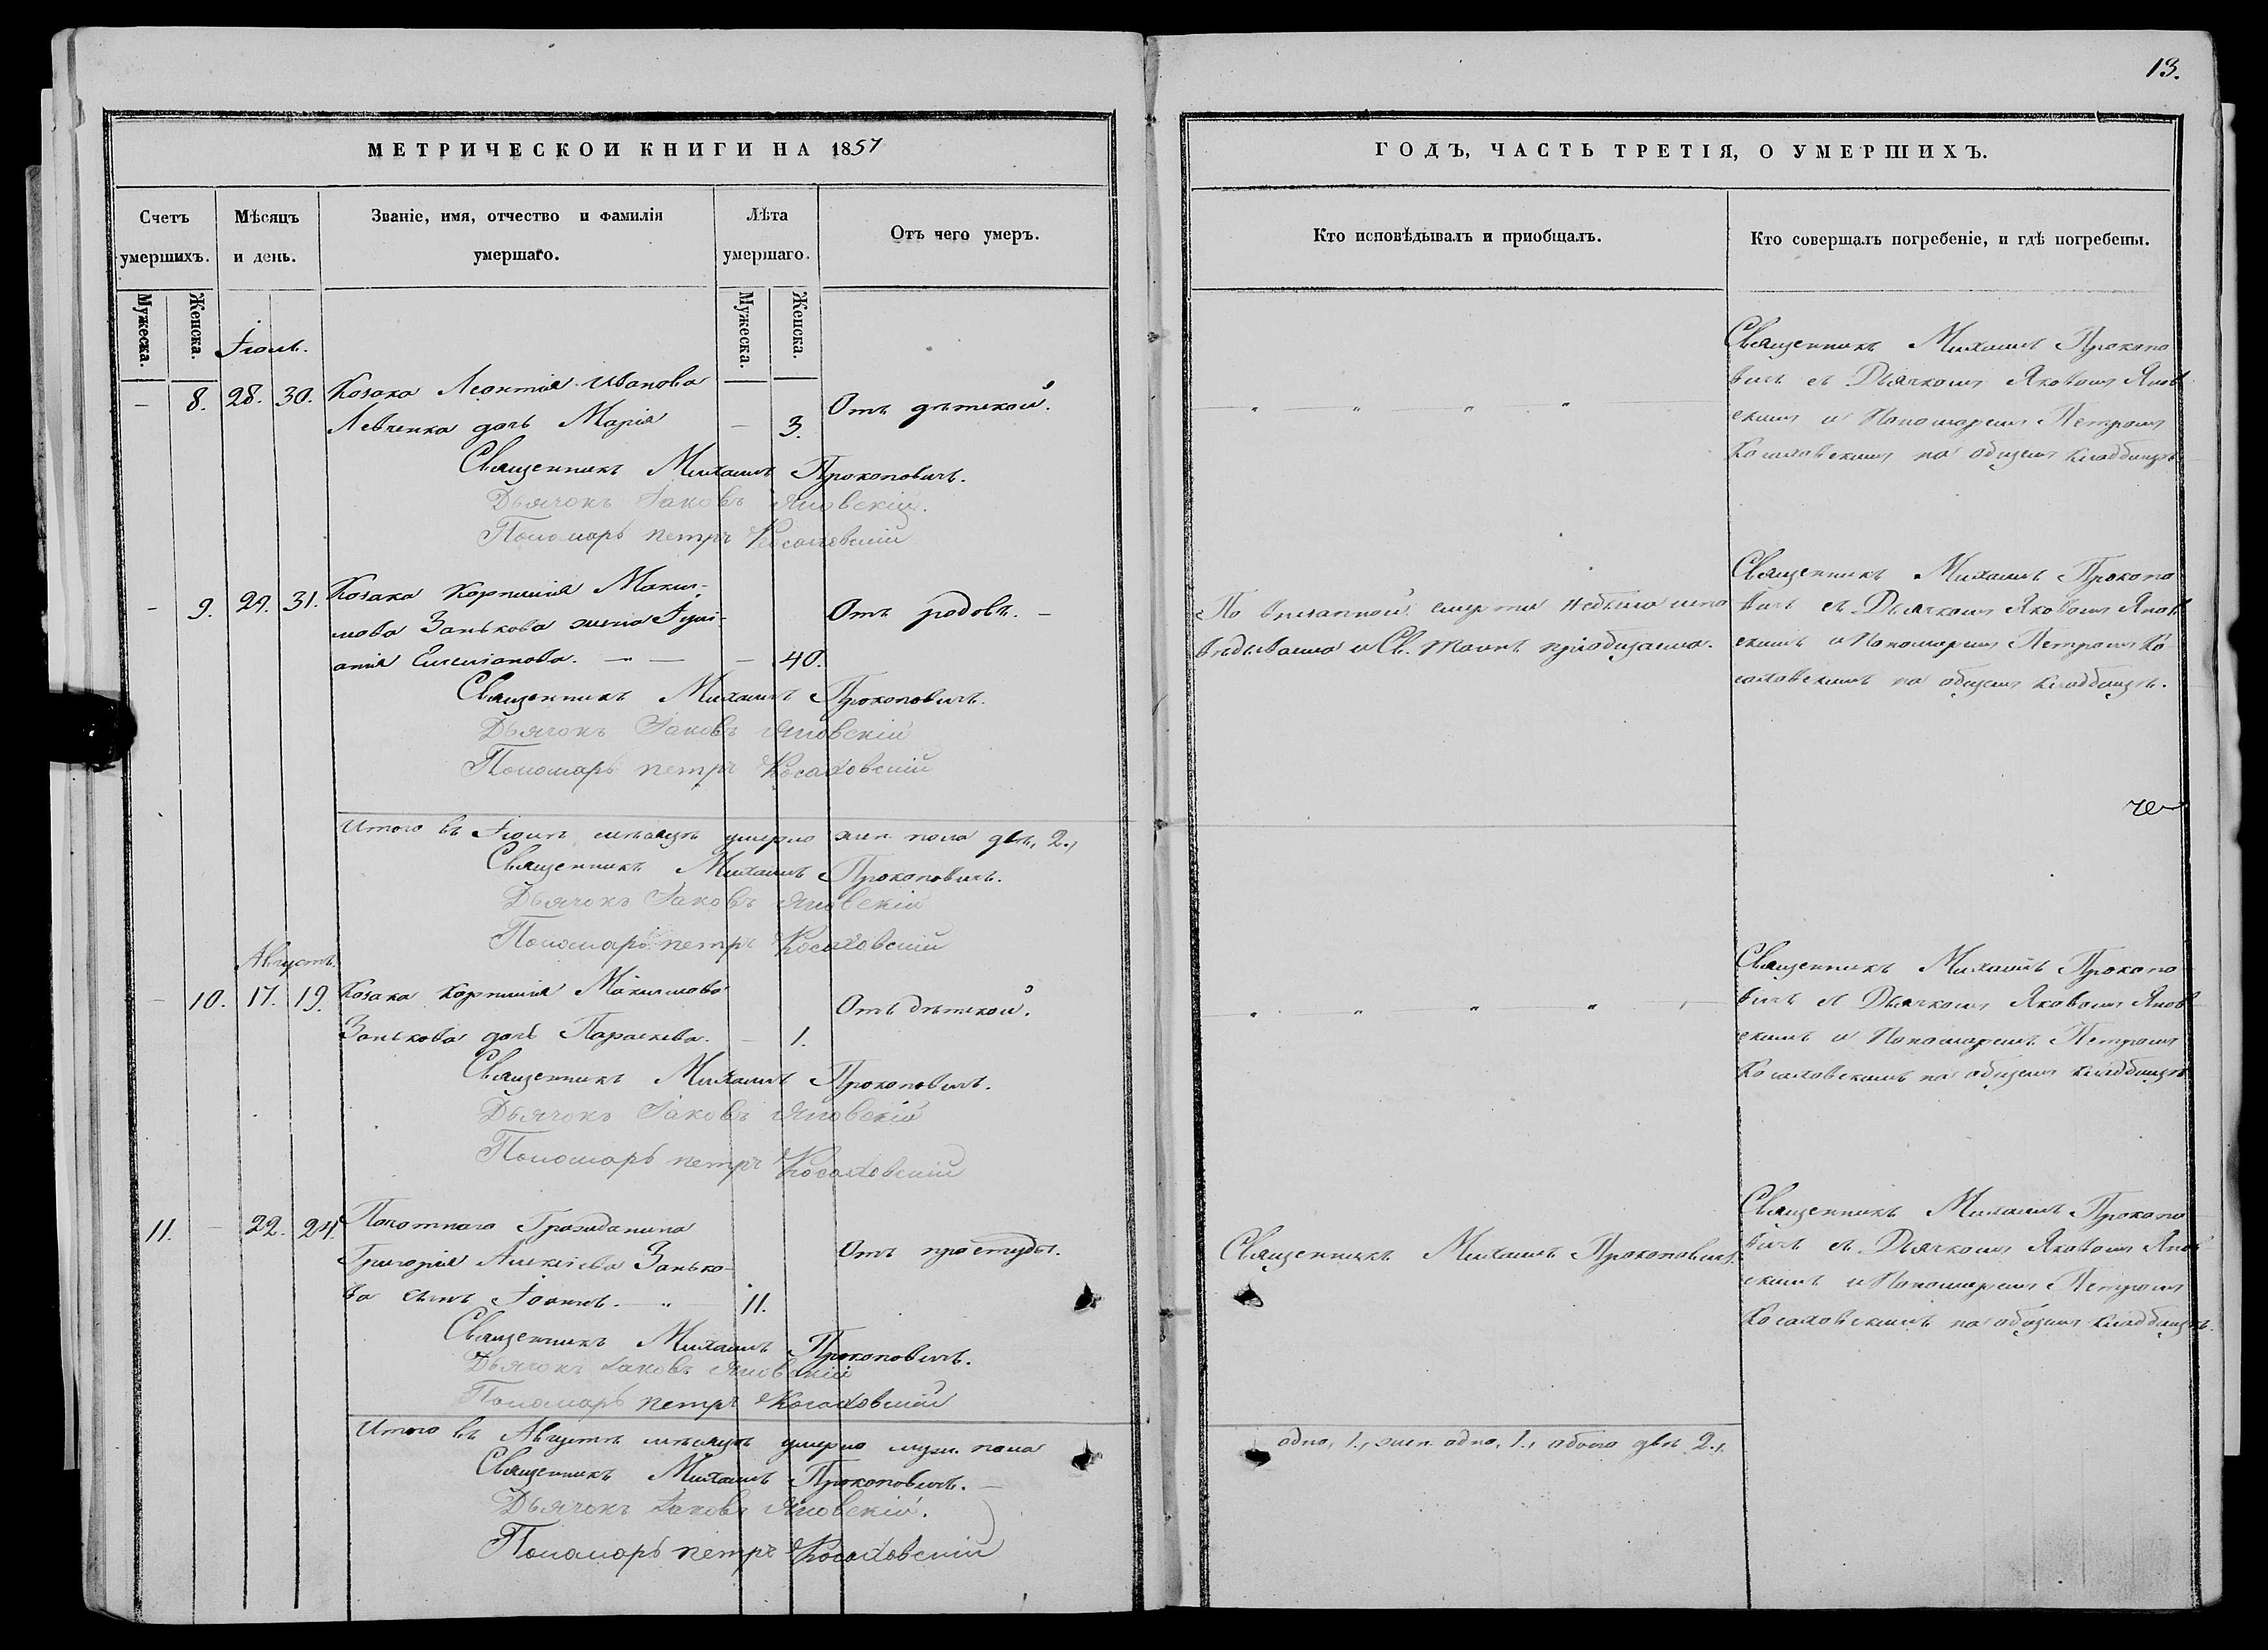 13.
МЕТРИЧЕСКОИ КНИГИ НА 1857
Счетъ умершихъ.
Мѣсяцъ и день.
Званіе, имя, отчество и фамилія умершаго.
Лѣта умершаго.
Отъ чего умеръ.
Мужеска.
Женска.
Мужеска.
Женска.
Іюль.
— 8. 28. 30. Козака Леонтія Иванова
Левченка дочь Марія — 3. Отъ дѣтской.
Священникъ Михаилъ Прокоповичъ.
Дьячокъ Іаковъ Яновскій.
Пономарь петръ Косаховскій
— 9. 29. 31. Козака Корнилія Макси-
мова Занькова жена Іулі-
анія Емеліанова. — — — 40. Отъ родовъ. —
Священникъ Михаилъ Прокоповичъ.
Дьячокъ Іаковъ Яновскій
Пономарь петръ Косаховскій
Итого въ Іюлѣ мѣсяцѣ умерло жен. пола двѣ, 2.,
Священникъ Михаилъ Прокоповичъ.
Дьячокъ Іаковъ Яновскій
Пономарь петръ Косаховскій
Августъ.
— 10. 17. 19. Козака Корнилія Максимова
Занькова дочь Параскева. — 1. Отъ дѣтской.
Священникъ Михаилъ Прокоповичъ.
Дьячокъ Іаковъ Яновскій
Пономарь петръ Косаховскій
11. — 22. 24. Гражданина
Григорія Алексіева Занько-
ва сынъ Іоаннъ. — " — 11. Отъ простуды.
Священникъ Михаилъ Прокоповичъ.
Дьячокъ Іаковъ Яновскій
Пономарь петръ Косаховскій
Итого въ Августѣ мѣсяцѣ умерло муж. пола
Священникъ Михаилъ Прокоповичъ. —
Дьячокъ Іаковъ Яновскій.
Пономарь петръ Косаховскій
ГОДЪ, ЧАСТЬ ТРЕТІЯ, О УМЕРШИХЪ.
Кто исповѣдывалъ и приобщалъ.
Кто совершалъ погребеніе, и гдѣ погребены.
— " " " " —
Священникъ Михаилъ Прокопо
вичъ съ Дьячкомъ Яковомъ Янов
скимъ и Пономаремъ Петромъ
Косаховскимъ на общемъ кладбищѣ
По внезапной смерти небыла испо
вѣдывана и Св. Таинъ пріобщена.
Священникъ Михаилъ Прокопо
вичъ съ Дьячкомъ Яковомъ Янов
скимъ и Пономаремъ Петромъ Ко
саховскимъ на общемъ кладбищѣ.
— " " " " —
Священникъ Михаилъ Прокопо
вичъ съ Дьячкомъ Яковомъ Янов
скимъ и Пономаремъ Петромъ
Косаховскимъ на общемъ кладбищѣ
Священникъ Михаилъ Прокоповичъ.
Священникъ Михаилъ Прокопо
вичъ съ Дьячкомъ Яковомъ Янов
скимъ и Пономаремъ Петромъ
Косаховскимъ на общемъ кладбищѣ.
одна, 1., жен. одна, 1., обоего двѣ 2.,